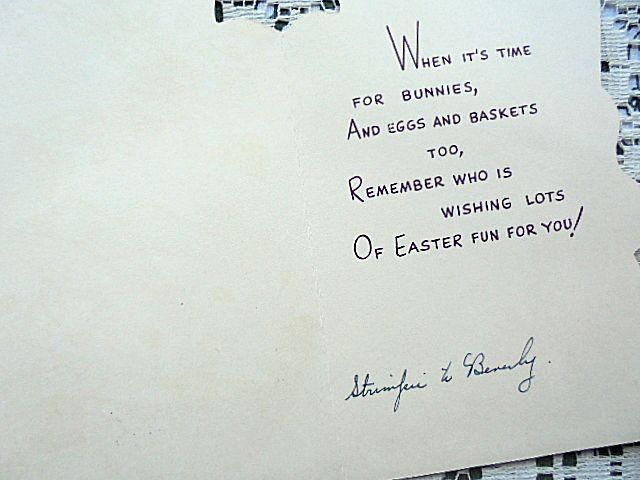 When it's time
for bunnies,
And eggs and baskets
too,
Remember who is
wishing lots
Of Easter fun for you!
to Beverly.